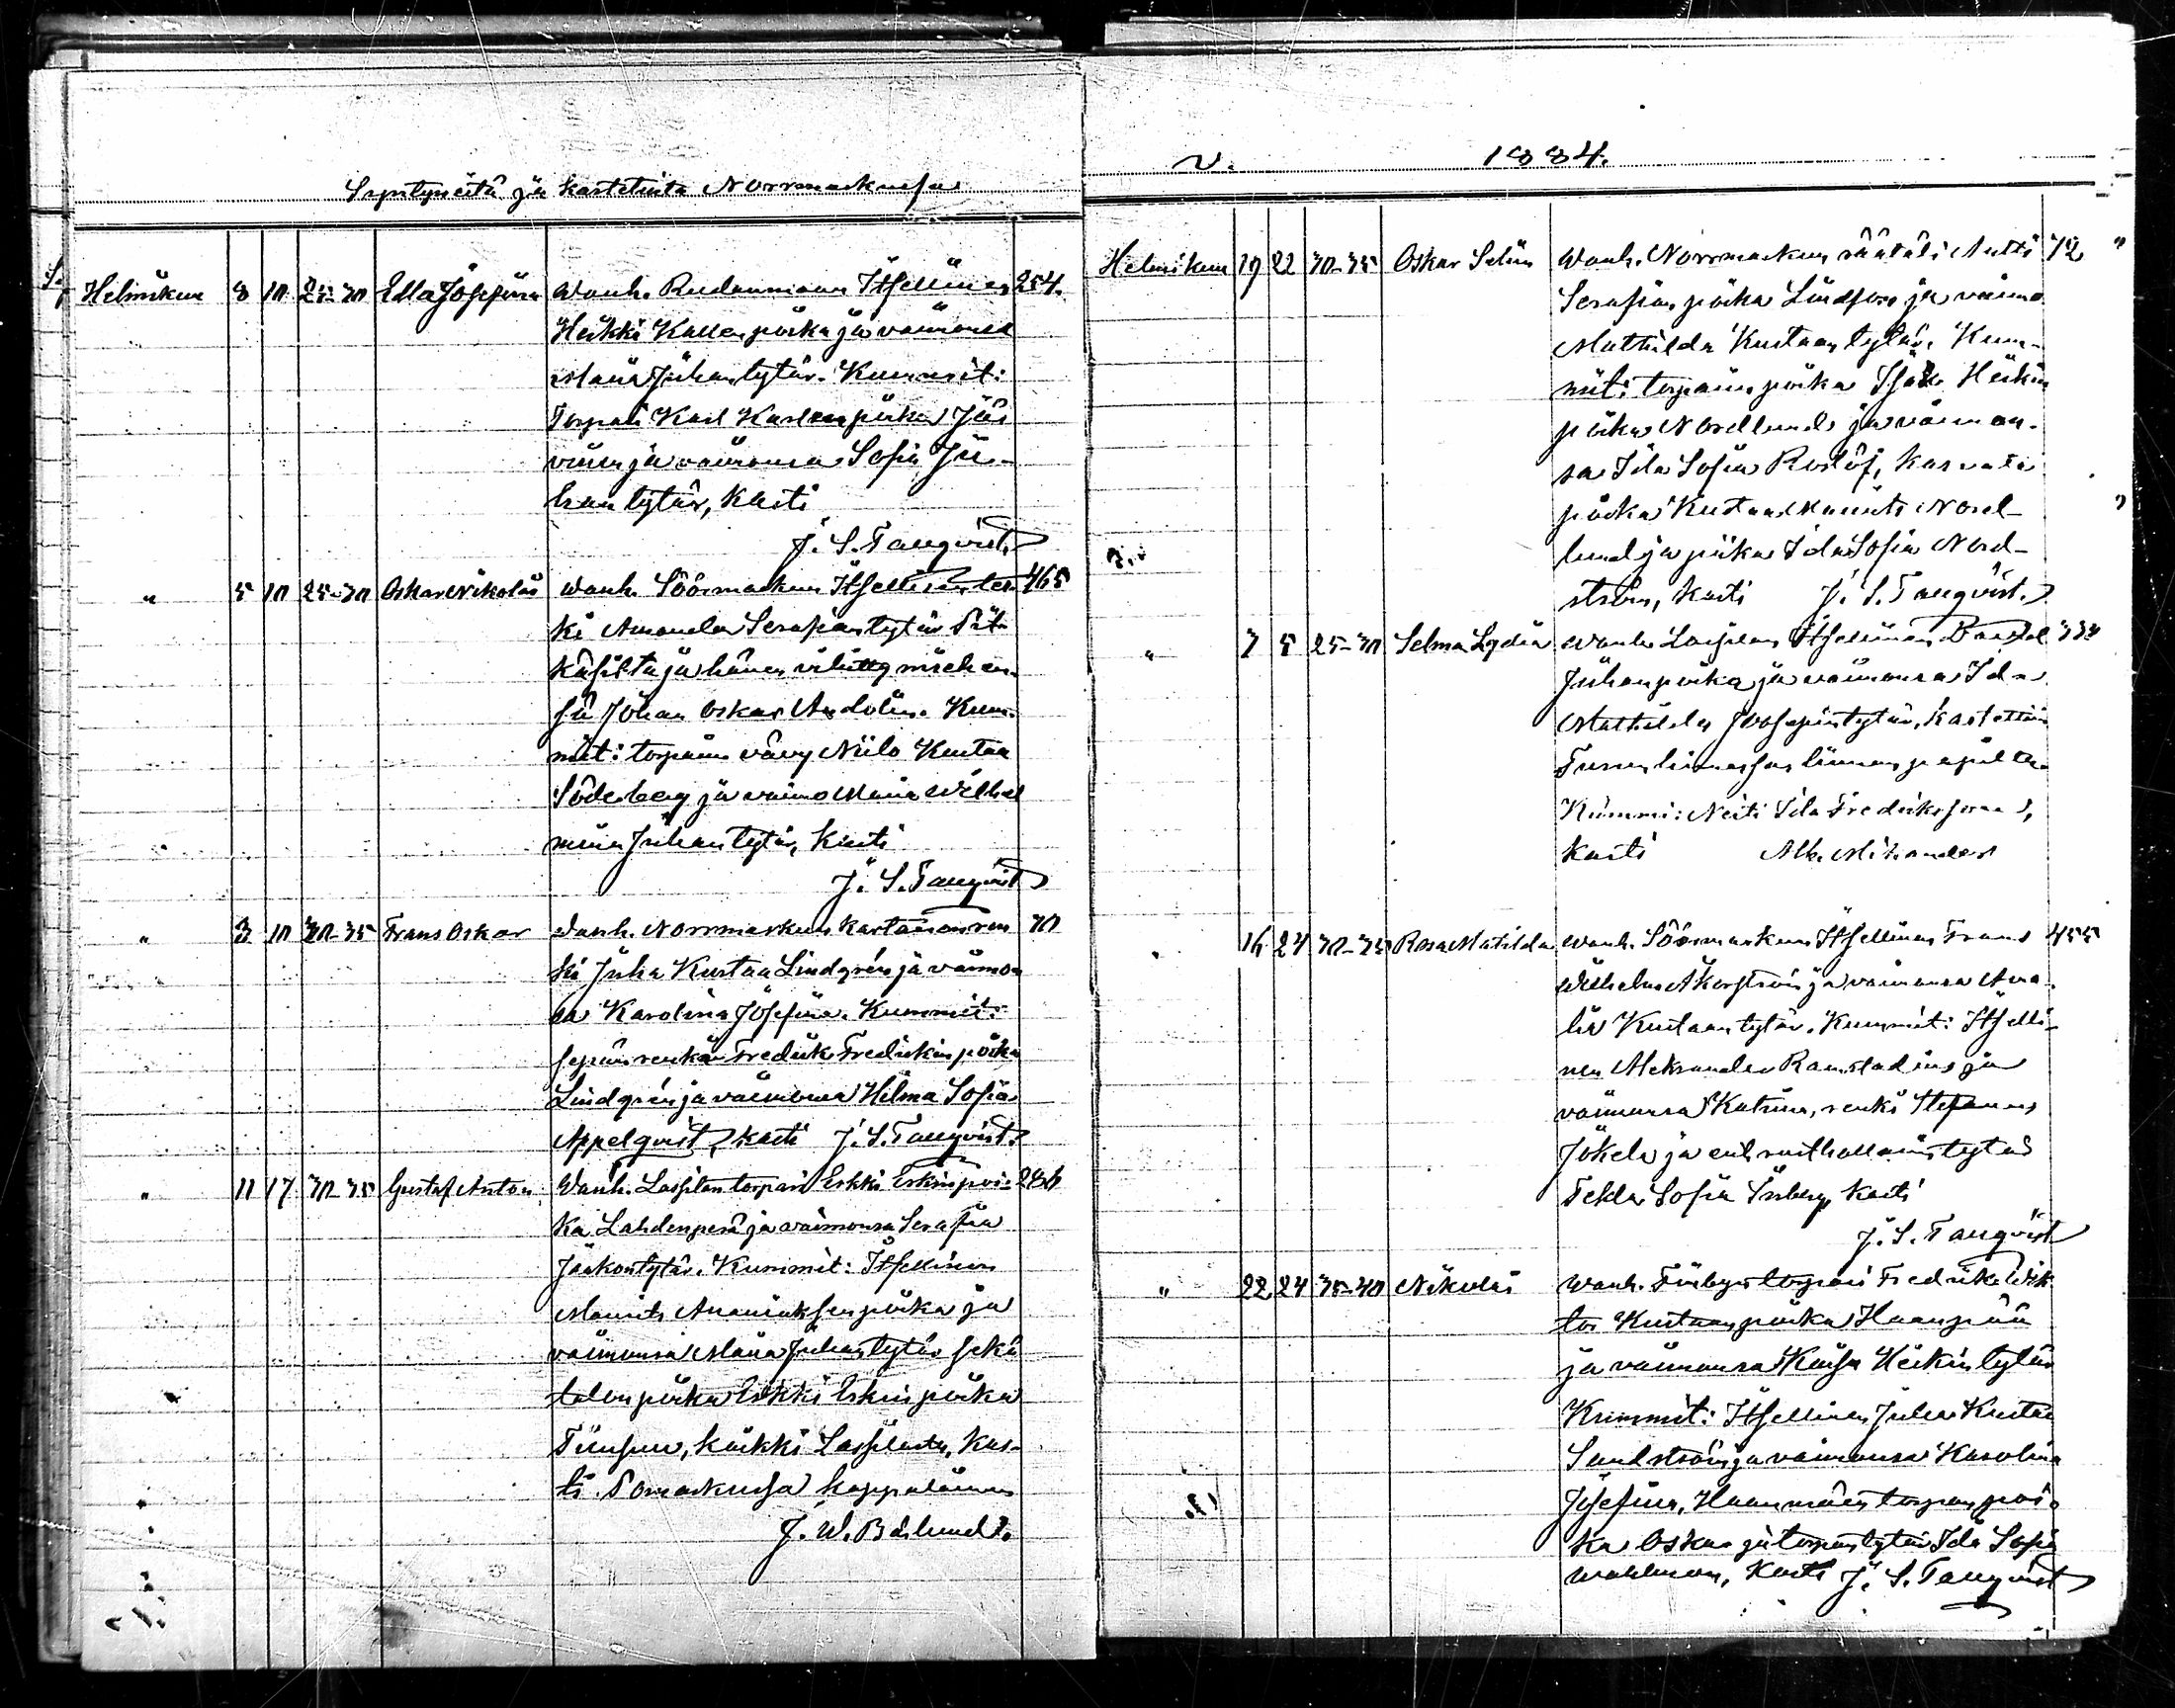 Syntyneitä ja kastetuita Norrmarkussa
Helmikuu 8 10 25-30 Ella Josefina Wanh. Itsellinen 254.
" Heikki Kallenpoika ja vaimonsa
Maria Juhantytär. Kummit:
Torpari Karl Karlenpoika Jär
vinen ja vaimonsa Sofia Ju-
hantytär, Kasti
J. S. Tanqvist
" 5 10 25-30 Oskar Nikolai Wanh. Söörmarkun Itsellisen les- 465
ki Amanda Serafiantytär
ja hänen vihitty miehen-
sä Johan Oskar Andolin. Kum-
mit: torparin vävy Niilo Kustaa
Söderberg ja vaimo Maria Wilhel
mina Juhantytär, Kasti
J. S. Tanqvist
" 3 10 30-35 Frans Oskar Wanh. Norrmarkun Kartanon ren 70
ki Juha Kustaa Lindgrén ja vaimon
sa Karolina Josefina. Kummit:
sepän renki Fredrik Fredrikinpoika
Lindgrén ja vaimonsa Hilma Sofia
Appelqvist, kasti J. S. Tanqvist
" 11 17 30-35 Gustaf Anton Wanh. Lassilan torpari Erkki Erkinpoi- 296
ka Lahdenperä ja vaimonsa Serafia
Jaakontytär. Kummit: Itsellinen
Maurits Ananiaksenpoika ja
vaimonsa Maria Juhantytär sekä
talonpoika Erkki Erkinpoika
kaikki Lassilasta, Kas-
ti Pomarkussa kappalainen
J. W. Bäslund.
v. 1884.
Helmikuu 19 22 30-35 Oskar Selim Wanh. Norrmarkun räätäli Antti 72 "
Serafianpoika Lindfors ja vaimo
Mathilda Kustaantytär. Kum-
mit: torparin poika Isak Heikin
poika Nordlund ja vaimon-
sa Ida Sofia Roslöf, kasvatti
poika Kustaa Maurits Nord-
lund ja piika Ida Sofia Nord-
ström, Kasti J. S. Tanqvist.
" 7 5 25-30 Selma Lydia Wanh. Lassilan Itsellinen
Juhanpoika ja vaimonsa Ida
Mathilda Joosepintytär, Kastettiin
Turun
Kummi: Neiti Ida Fredriksson,
Kasti
" 16 24 30-35 Rosa Matilda Wanh. Söörmarkun Itsellinen Frans 455
Wilhelm Åkerström ja vaimonsa Ama-
lia Kustaantytär. Kummit: Itselli-
nen Aleksander Ramstadius ja
vaimonsa Katrina, renki Stefanus
Jokela ja ent. rusthollarin tytär
Tekla Sofia kasti
J. S. Tanqvist
" 22 24 35-40 Nikolai Wanh. Finbyn torpari Fredrik Wik
tor Kustaanpoika Haanpää
ja vaimonsa Kaisa Heikintytär
Kummit: Itsellinen Juha Kustaa
Sandström ja vaimonsa Karolina
Josefina, torpan poi-
ka Oskar ja torpantytär Ida Sofia
Kasti J. S. Tanqvist